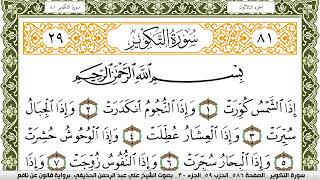 الجزء الثلاثون سورة التكوير ٨١
٨١ سُورَةُ التَّكْوِيرِ ٢٩
بِسْمِ اللَّهِ الرَّحْمَٰنِ الرَّحِيمِ
إِذَا الشَّمْسُ كُوِّرَتْ ١ وَإِذَا النُّجُومُ انكَدَرَتْ ٢ وَإِذَا الْجِبَالُ
سُيِّرَتْ ٣ وَإِذَا الْعِشَارُ عُطِّلَتْ ٤ وَإِذَا الْوُحُوشُ حُشِرَتْ
٥ وَإِذَا الْبِحَارُ سُجِّرَتْ ٦ وَإِذَا النُّفُوسُ زُوِّجَتْ ٧
سورة التكوير . الصفحة ٥٨٦ . الحزب ٥٩ . الجزء ٣٠ . بصوت الشيخ علي عبد الرحمن الحذيفي . برواية قالون عن نافع